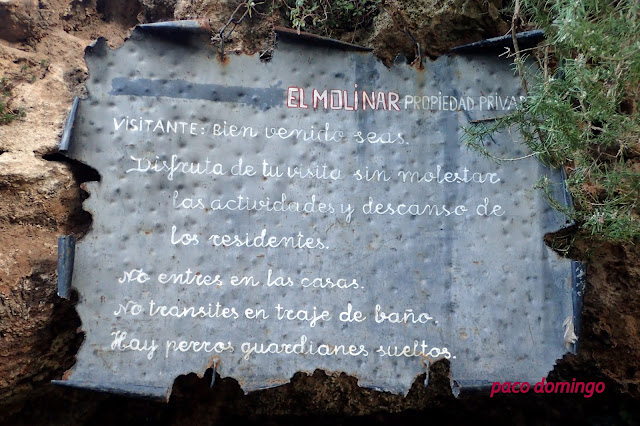 EL MOLINAR PROPIEDAD PRIVADA
VISITANTE: Bien venido seas.
Disfruta de tu visita sin molestar
las actividades y descanso de
los residentes.
No entres en las casas.
No transites en traje de baño.
Hay perros guardianes sueltos.
paco domingo